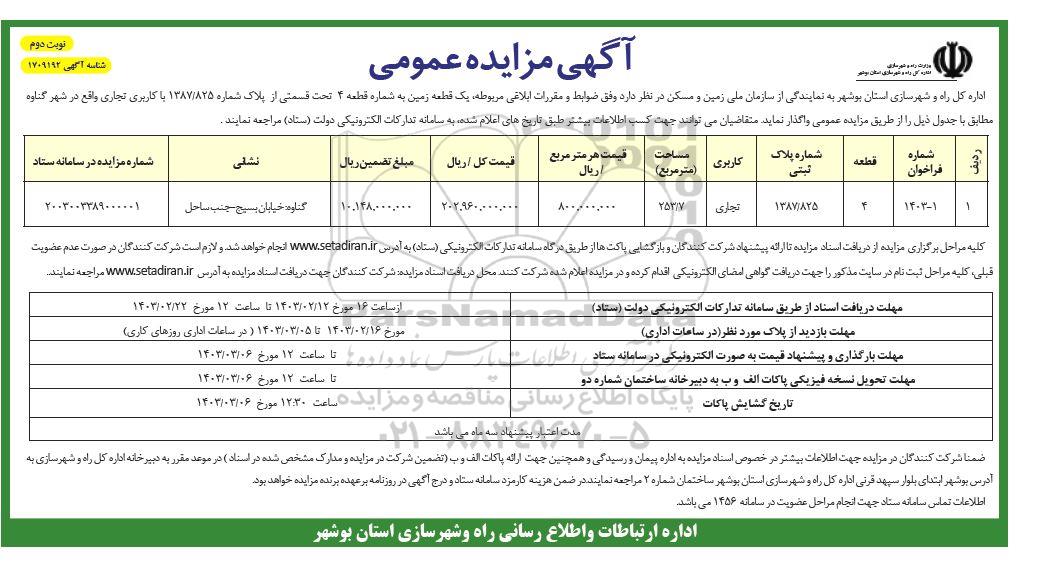 نوبت دوم
شناسه آگهی ۱۷۰۹۱۹۲
آگهی مزایده عمومی
وزارت راه و شهرسازی
اداره کل راه و شهرسازی استان بوشهر
اداره کل راه و شهرسازی استان بوشهر به نمایندگی از سازمان ملی زمین و مسکن در نظر دارد وفق ضوابط و مقررات ابلاغی مربوطه، یک قطعه زمین به شماره قطعه ۴ تحت قسمتی از پلاک شماره ۱۳۸۷/۸۲۵ با کاربری تجاری واقع در شهر گناوه
مطابق با جدول ذیل را از طریق مزایده عمومی واگذار نماید. متقاضیان می توانند جهت کسب اطلاعات بیشتر طبق تاریخ های اعلام شده، به سامانه تدارکات الکترونیکی دولت (ستاد) مراجعه نمایند .
ردیف | شماره فراخوان | قطعه | شماره پلاک ثبتی | کاربری | مساحت (مترمربع) | قیمت هر متر مربع / ریال | قیمت کل / ریال | مبلغ تضمین ریال | نشانی | شماره مزایده در سامانه ستاد
۱ | ۱۴۰۳-۱ | ۴ | ۱۳۸۷/۸۲۵ | تجاری | ۲۵۳/۷ | ۸۰۰,۰۰۰,۰۰۰ | ۲۰۲,۹۶۰,۰۰۰,۰۰۰ | ۱۰,۱۴۸,۰۰۰,۰۰۰ | گناوه: خیابان بسیج-جنب ساحل | ۲۰۰۳۰۰۳۳۸۹۰۰۰۰۰۱
کلیه مراحل برگزاری مزایده از دریافت اسناد مزایده تا ارائه پیشنهاد شرکت کنندگان و بازگشایی پاکت ها از طریق درگاه سامانه تدارکات الکترونیکی (ستاد) به آدرس www.setadiran.ir انجام خواهد شد. و لازم است شرکت کنندگان در صورت عدم عضویت
قبلی، کلیه مراحل ثبت نام در سایت مذکور را جهت دریافت گواهی امضای الکترونیکی اقدام کرده و در مزایده اعلام شده شرکت کنند. محل دریافت اسناد مزایده: شرکت کنندگان جهت دریافت اسناد مزایده به آدرس www.setadiran.ir مراجعه نمایند..
مهلت دریافت اسناد از طریق سامانه تدارکات الکترونیکی دولت (ستاد) | از ساعت ۱۶ مورخ ۱۴۰۳/۰۲/۱۲ تا ساعت ۱۲ مورخ ۱۴۰۳/۰۲/۲۲
مهلت بازدید از پلاک مورد نظر(در ساعات اداری) | مورخ ۱۴۰۳/۰۲/۱۶ تا ۱۴۰۳/۰۳/۰۵ ( در ساعات اداری روزهای کاری)
مهلت بارگذاری و پیشنهاد قیمت به صورت الکترونیکی در سامانه ستاد | تا ساعت ۱۲ مورخ ۱۴۰۳/۰۳/۰۶
مهلت تحویل نسخه فیزیکی پاکات الف و ب به دبیرخانه ساختمان شماره دو | تا ساعت ۱۲ مورخ ۱۴۰۳/۰۳/۰۶
تاریخ گشایش پاکات | ساعت ۱۲:۳۰ مورخ ۱۴۰۳/۰۳/۰۶
مدت اعتبار پیشنهاد سه ماه می باشد
ضمنا شرکت کنندگان در مزایده جهت اطلاعات بیشتر در خصوص اسناد مزایده به اداره پیمان و رسیدگی و همچنین جهت ارائه پاکات الف و ب (تضمین شرکت در مزایده و مدارک مشخص شده در اسناد ) در موعد مقرر به دبیرخانه اداره کل راه و شهرسازی به
آدرس بوشهر ابتدای بلوار سپهبد قرنی اداره کل راه و شهرسازی استان بوشهر ساختمان شماره ۲ مراجعه نمایند.در ضمن هزینه کارمزد سامانه ستاد و درج آگهی در روزنامه برعهده برنده مزایده خواهد بود.
اطلاعات تماس سامانه ستاد جهت انجام مراحل عضویت در سامانه ۱۴۵۶ می باشد.
اداره ارتباطات واطلاع رسانی راه وشهرسازی استان بوشهر
ParsNamadData
پایگاه اطلاع رسانی مناقصه و مزایده
۰۲۱-۸۸۳۴۹۶۷۰-۵